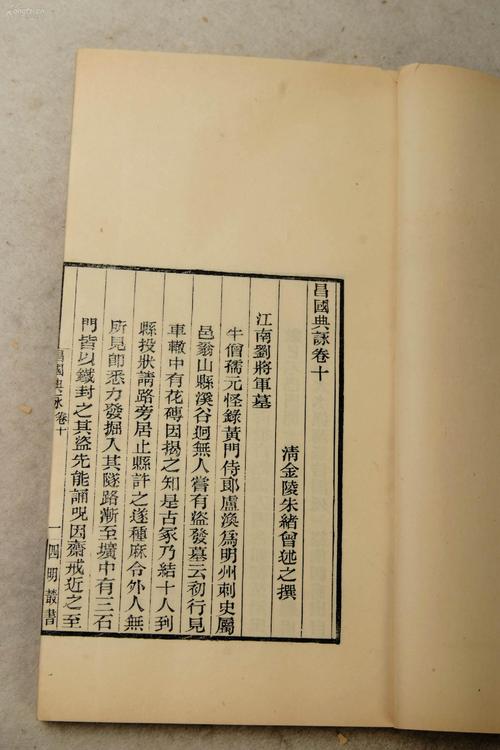 昌國典詠卷十
清金陵朱緒曾述之撰
江南劉將軍墓
牛僧孺元怪錄黃門侍郎盧渙爲明州刺史屬
邑翁山縣溪谷迥無人嘗有盜發墓云初行見
車轍中有花磚因揭之知是古冢乃結十人到
縣投狀請路旁居止縣許之遂種麻令外人無
所見卽悉力發掘入其隧路漸至壙中有三石
門皆以鐵封之其盜先能誦呪因齋戒近之至
昌國典詠 卷十
一
四明叢書